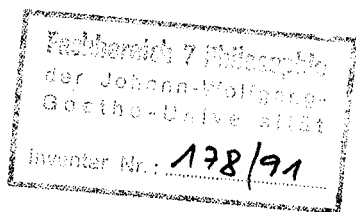 Fachbereich 7 Philosophie
der Johann-Wolfgang-
Goethe-Universität
Inventar Nr.: 178/91